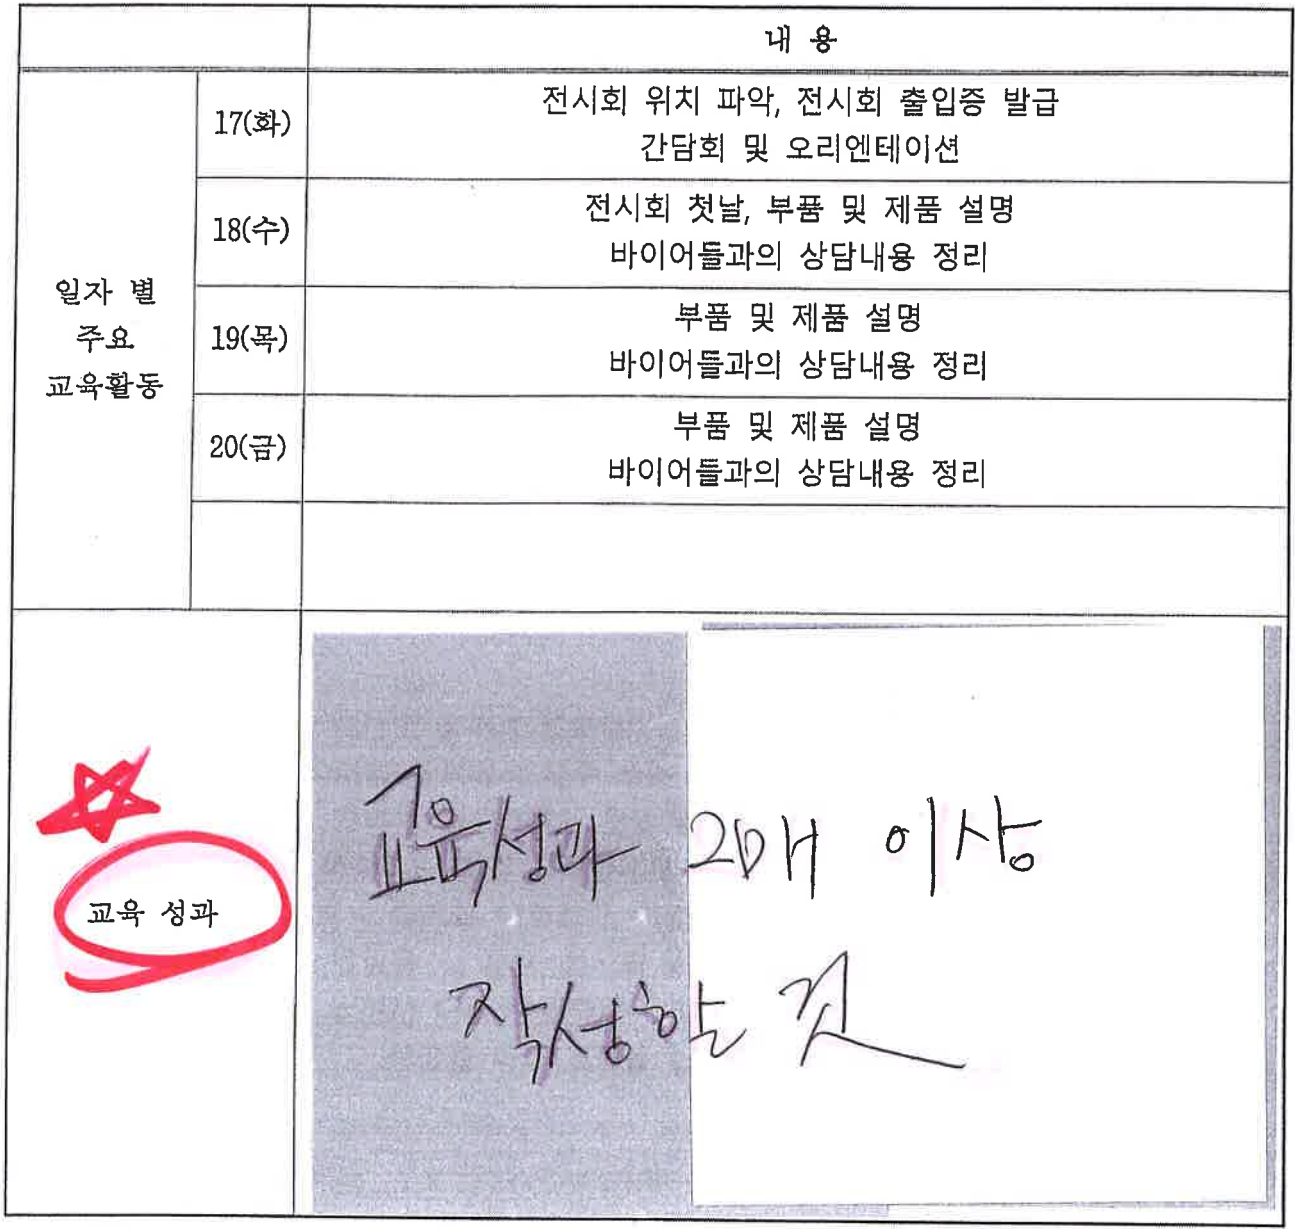 내 용
일자 별
주요
교육활동
17(화)
전시회 위치 파악, 전시회 출입증 발급
간담회 및 오리엔테이션
18(수)
전시회 첫날, 부품 및 제품 설명
바이어들과의 상담내용 정리
19(목)
부품 및 제품 설명
바이어들과의 상담내용 정리
20(금)
부품 및 제품 설명
바이어들과의 상담내용 정리
교육 성과
교육성과 20개 이상
작성한 것